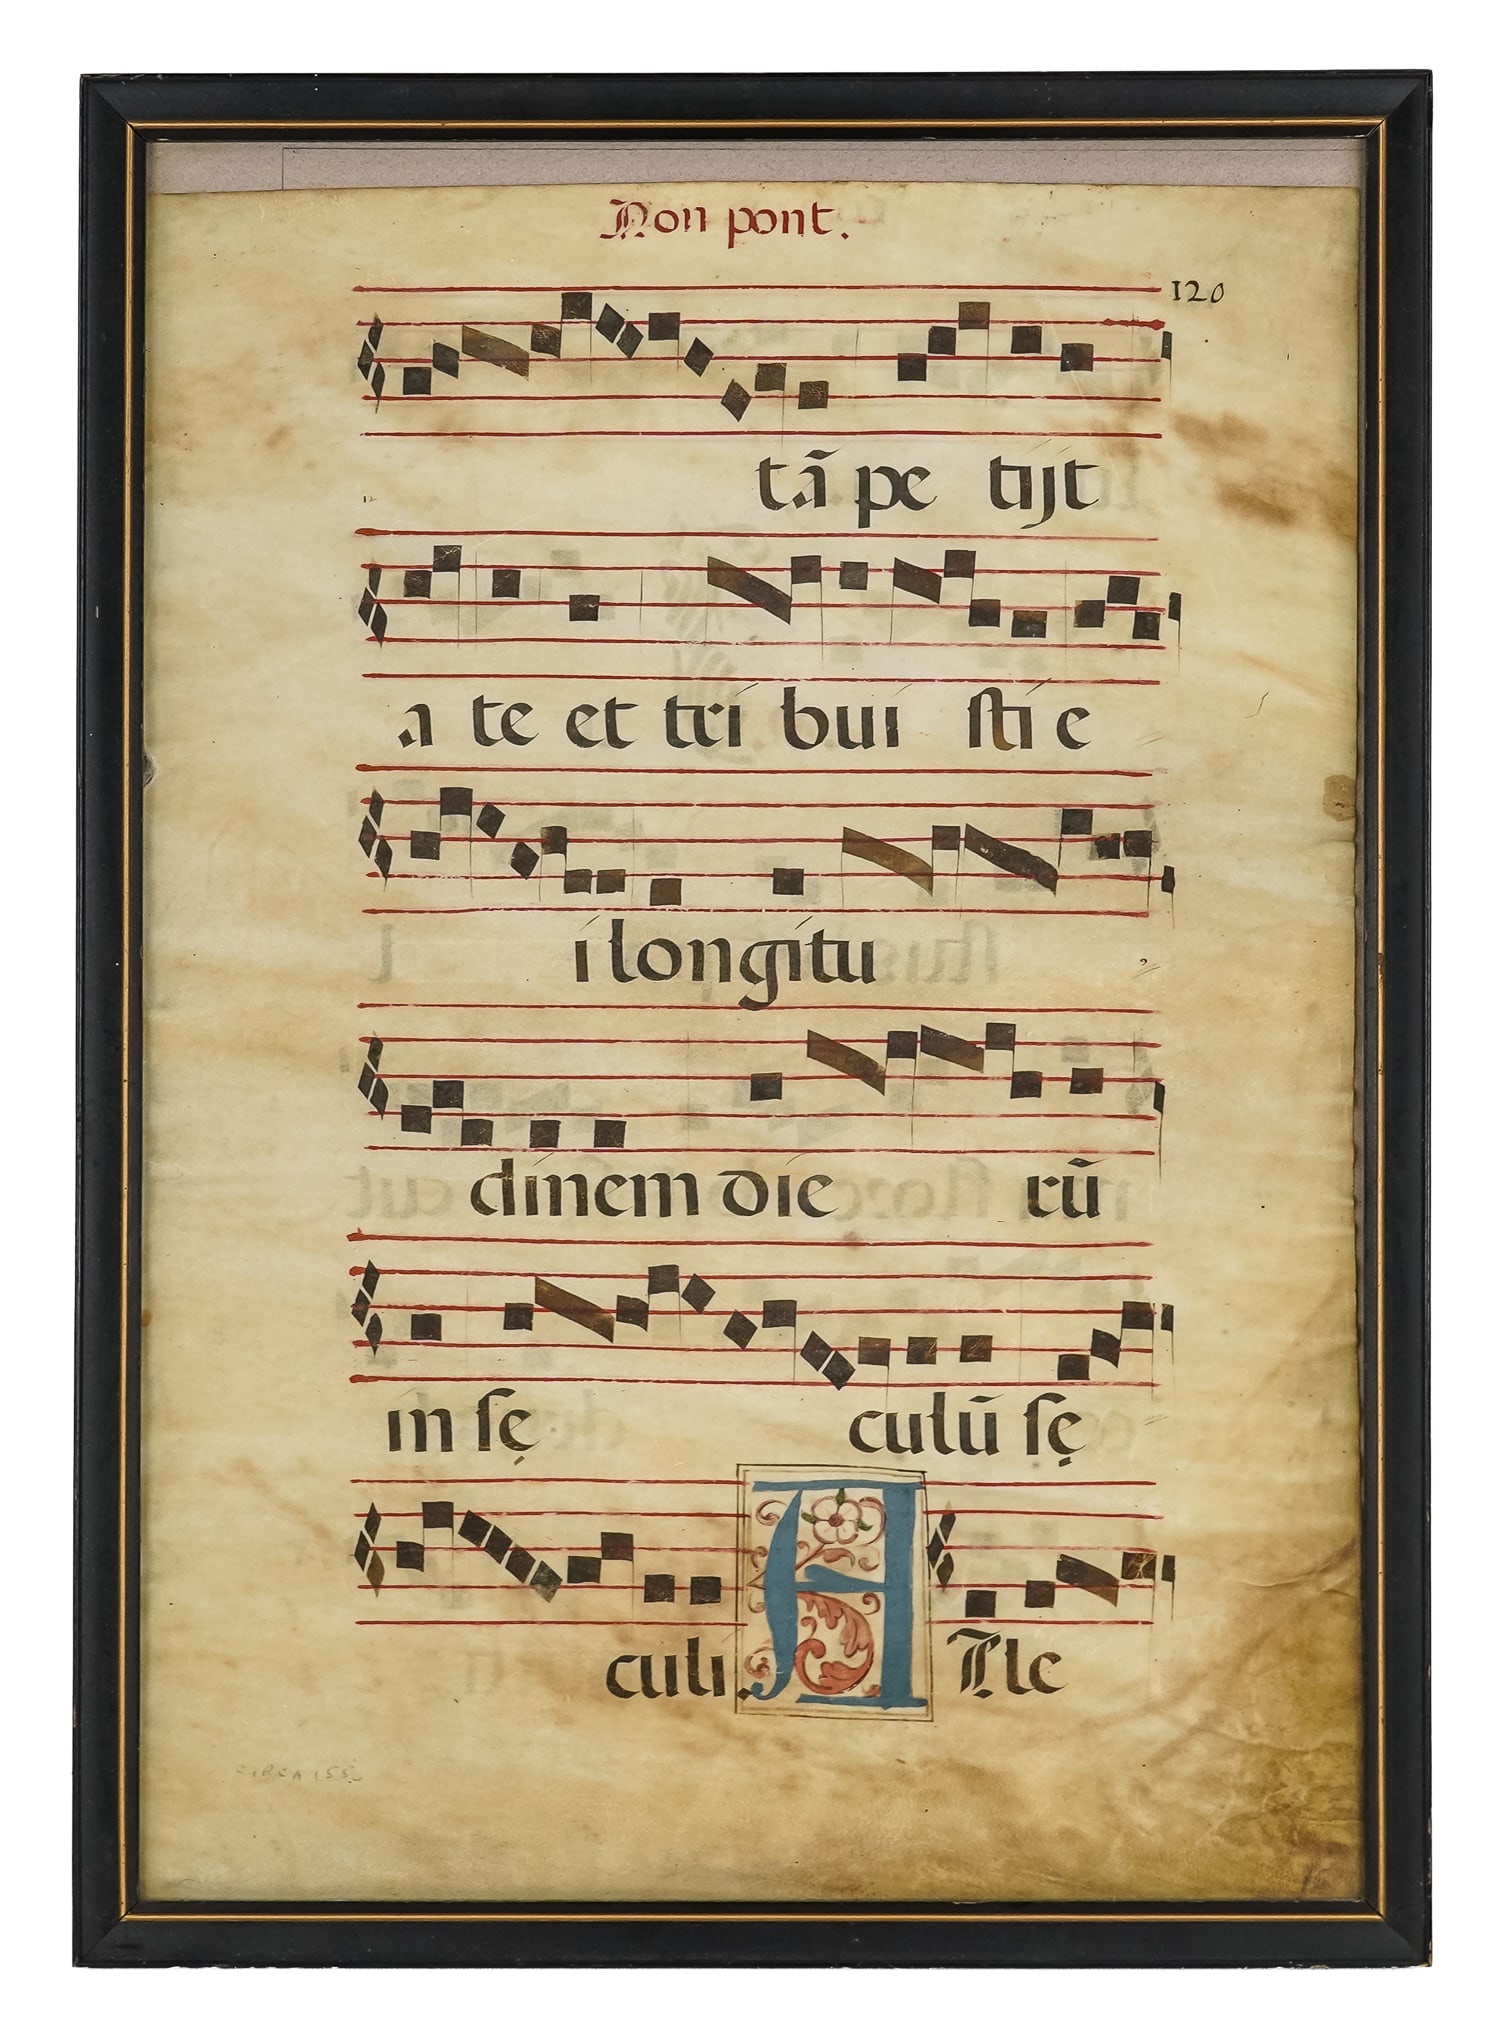 Non pont.
120
tã pe tijt
a te et tri bui sti e
i longitu
dinem die rũ
in sę culũ sę
culi. A Lle
CIRCA 1550